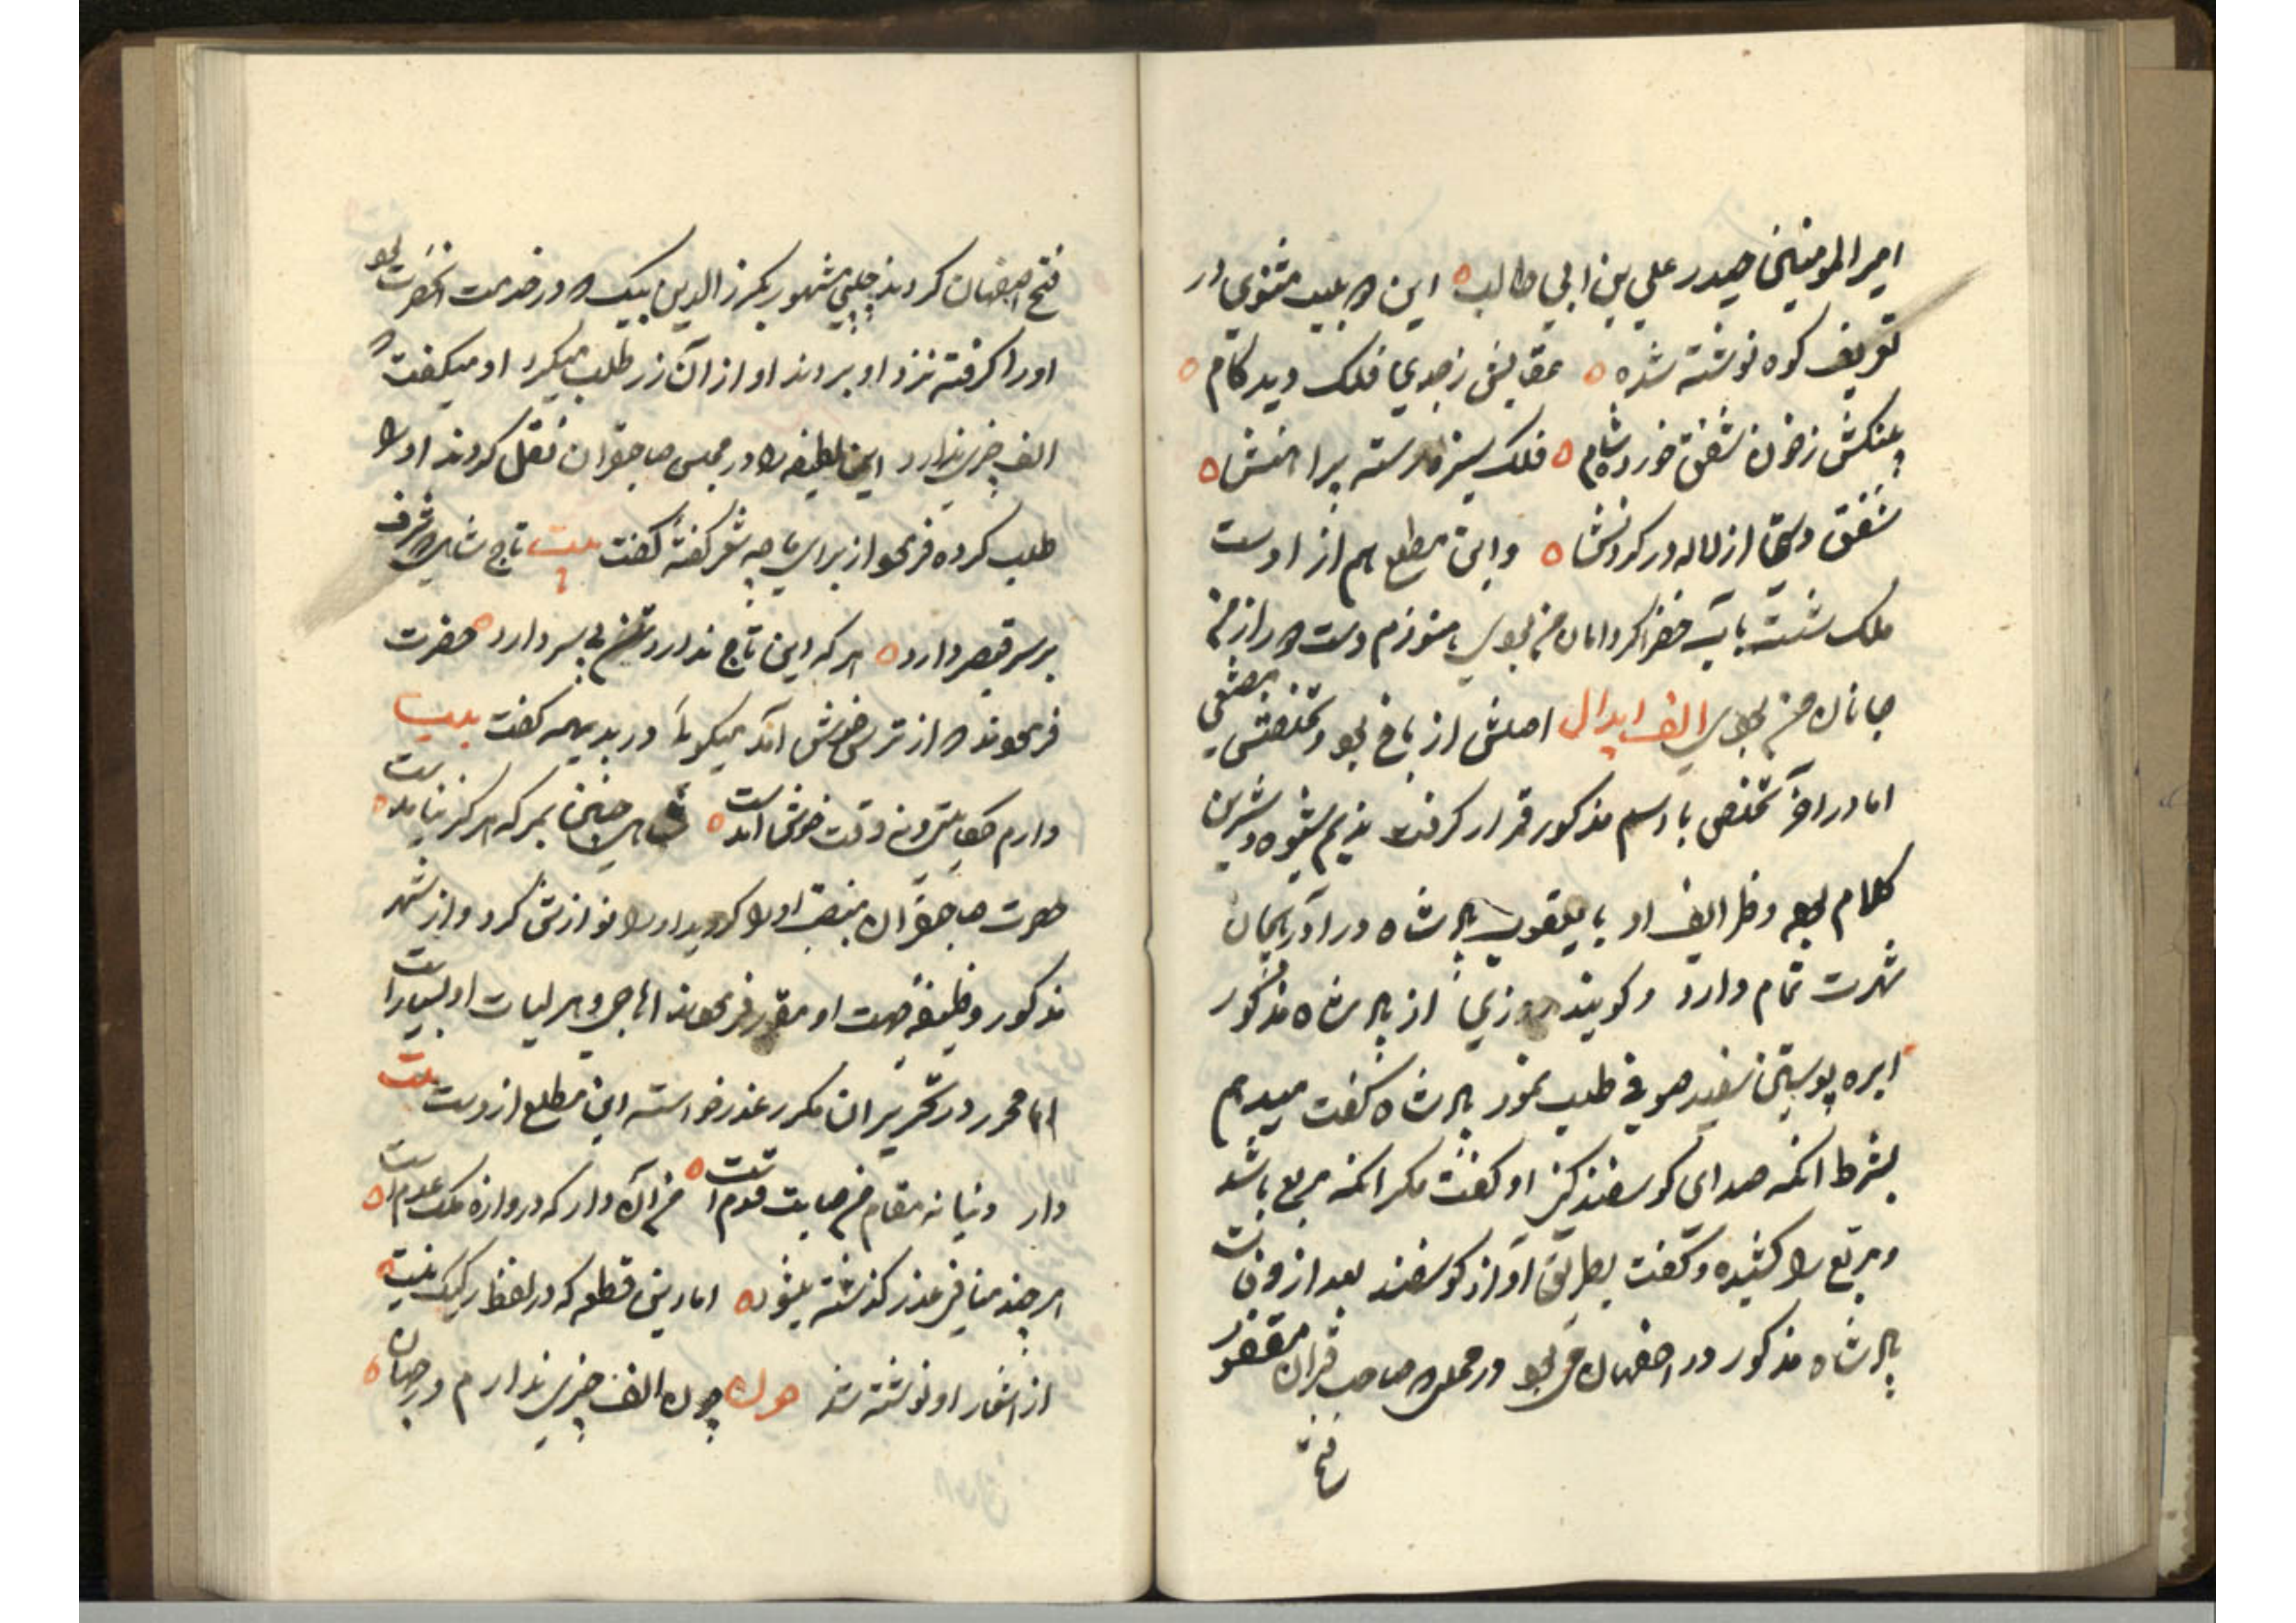 امیر المومنین حیدر علی بن ابی طالب این دو بیت مثنوی در
تعریف کوه نوشته شده عقابش ز جدی فلک دیده کام
پلنگش ز خون شفق خورده شام فلک سبزه رسته پیرامنش
شفق دسته از لاله در گردنش و این مطلع هم از اوست
ملک شست بآب خضر اگر دامان من بوی هنوزم دست در از من
جانان من بوی الف ابدال اصلش از بلخ بود و تخلصش مطیعی
اما در آخر تخلص با اسم مذکور قرار گرفت ندیم شیوه و شیرین
کلام بود و ظرایف او با یعقوب پادشاه در آذربیجان
شهرت تمام دارد و گویند روزی از پادشاه مذکور
ابره پوستین سفید صوفی طلب نمود پادشاه گفت میدهم
بشرط آنکه صدای گوسفند کنی او گفت مگر آنکه مربع باشد
و مربع را کشیده گفت بطریق آواز گوسفند بعد از وفات
پادشاه مذکور در اصفهان می بود در محلی که صاحب قران مغفور
فتح
فتح اصفهان کردند چلپی مشهور بکرز الدین بیک که در خدمت آنحضرت بود
او را گرفته نزد او بردند او از آن زر طلب میکرد او میگفت که
الف چیزی ندارد این لطیفه را در مجلس صاحبقران نقل کردند او را
طلب کرده فرمود از برای ما چه شعر گفته گفت بیت تاج شاهی که شرف
بر سر قیصر دارد هر که این تاج ندارد تن بی سر دارد حضرت
فرمودند که از ترس خوش آمد میگویی در بدیهه گفت بیت
دارم حکایتی و نه وقت خوش آمدست شاهی چنین بمرکه هرگز نیامدست
حضرت صاحبقران منصب او را گردید او را نوازش کرد و از شهر
مذکور وظیفه جهت او مقرر فرمودند اهاجی و هزلیات او بسیار است
اما محرر در تحریر آن مکرر عذر خواسته این مطلع از وست بیت
دار دنیا نه مقام من صاحب قدم است من آن دار که دروازه ملک عدم است
هر چند منافی عذر گذشته میشود اما این قطعه که در لفظ رکیک نیست
از اشعار او نوشته شد هوله چون الف چیزی ندارم در جهان